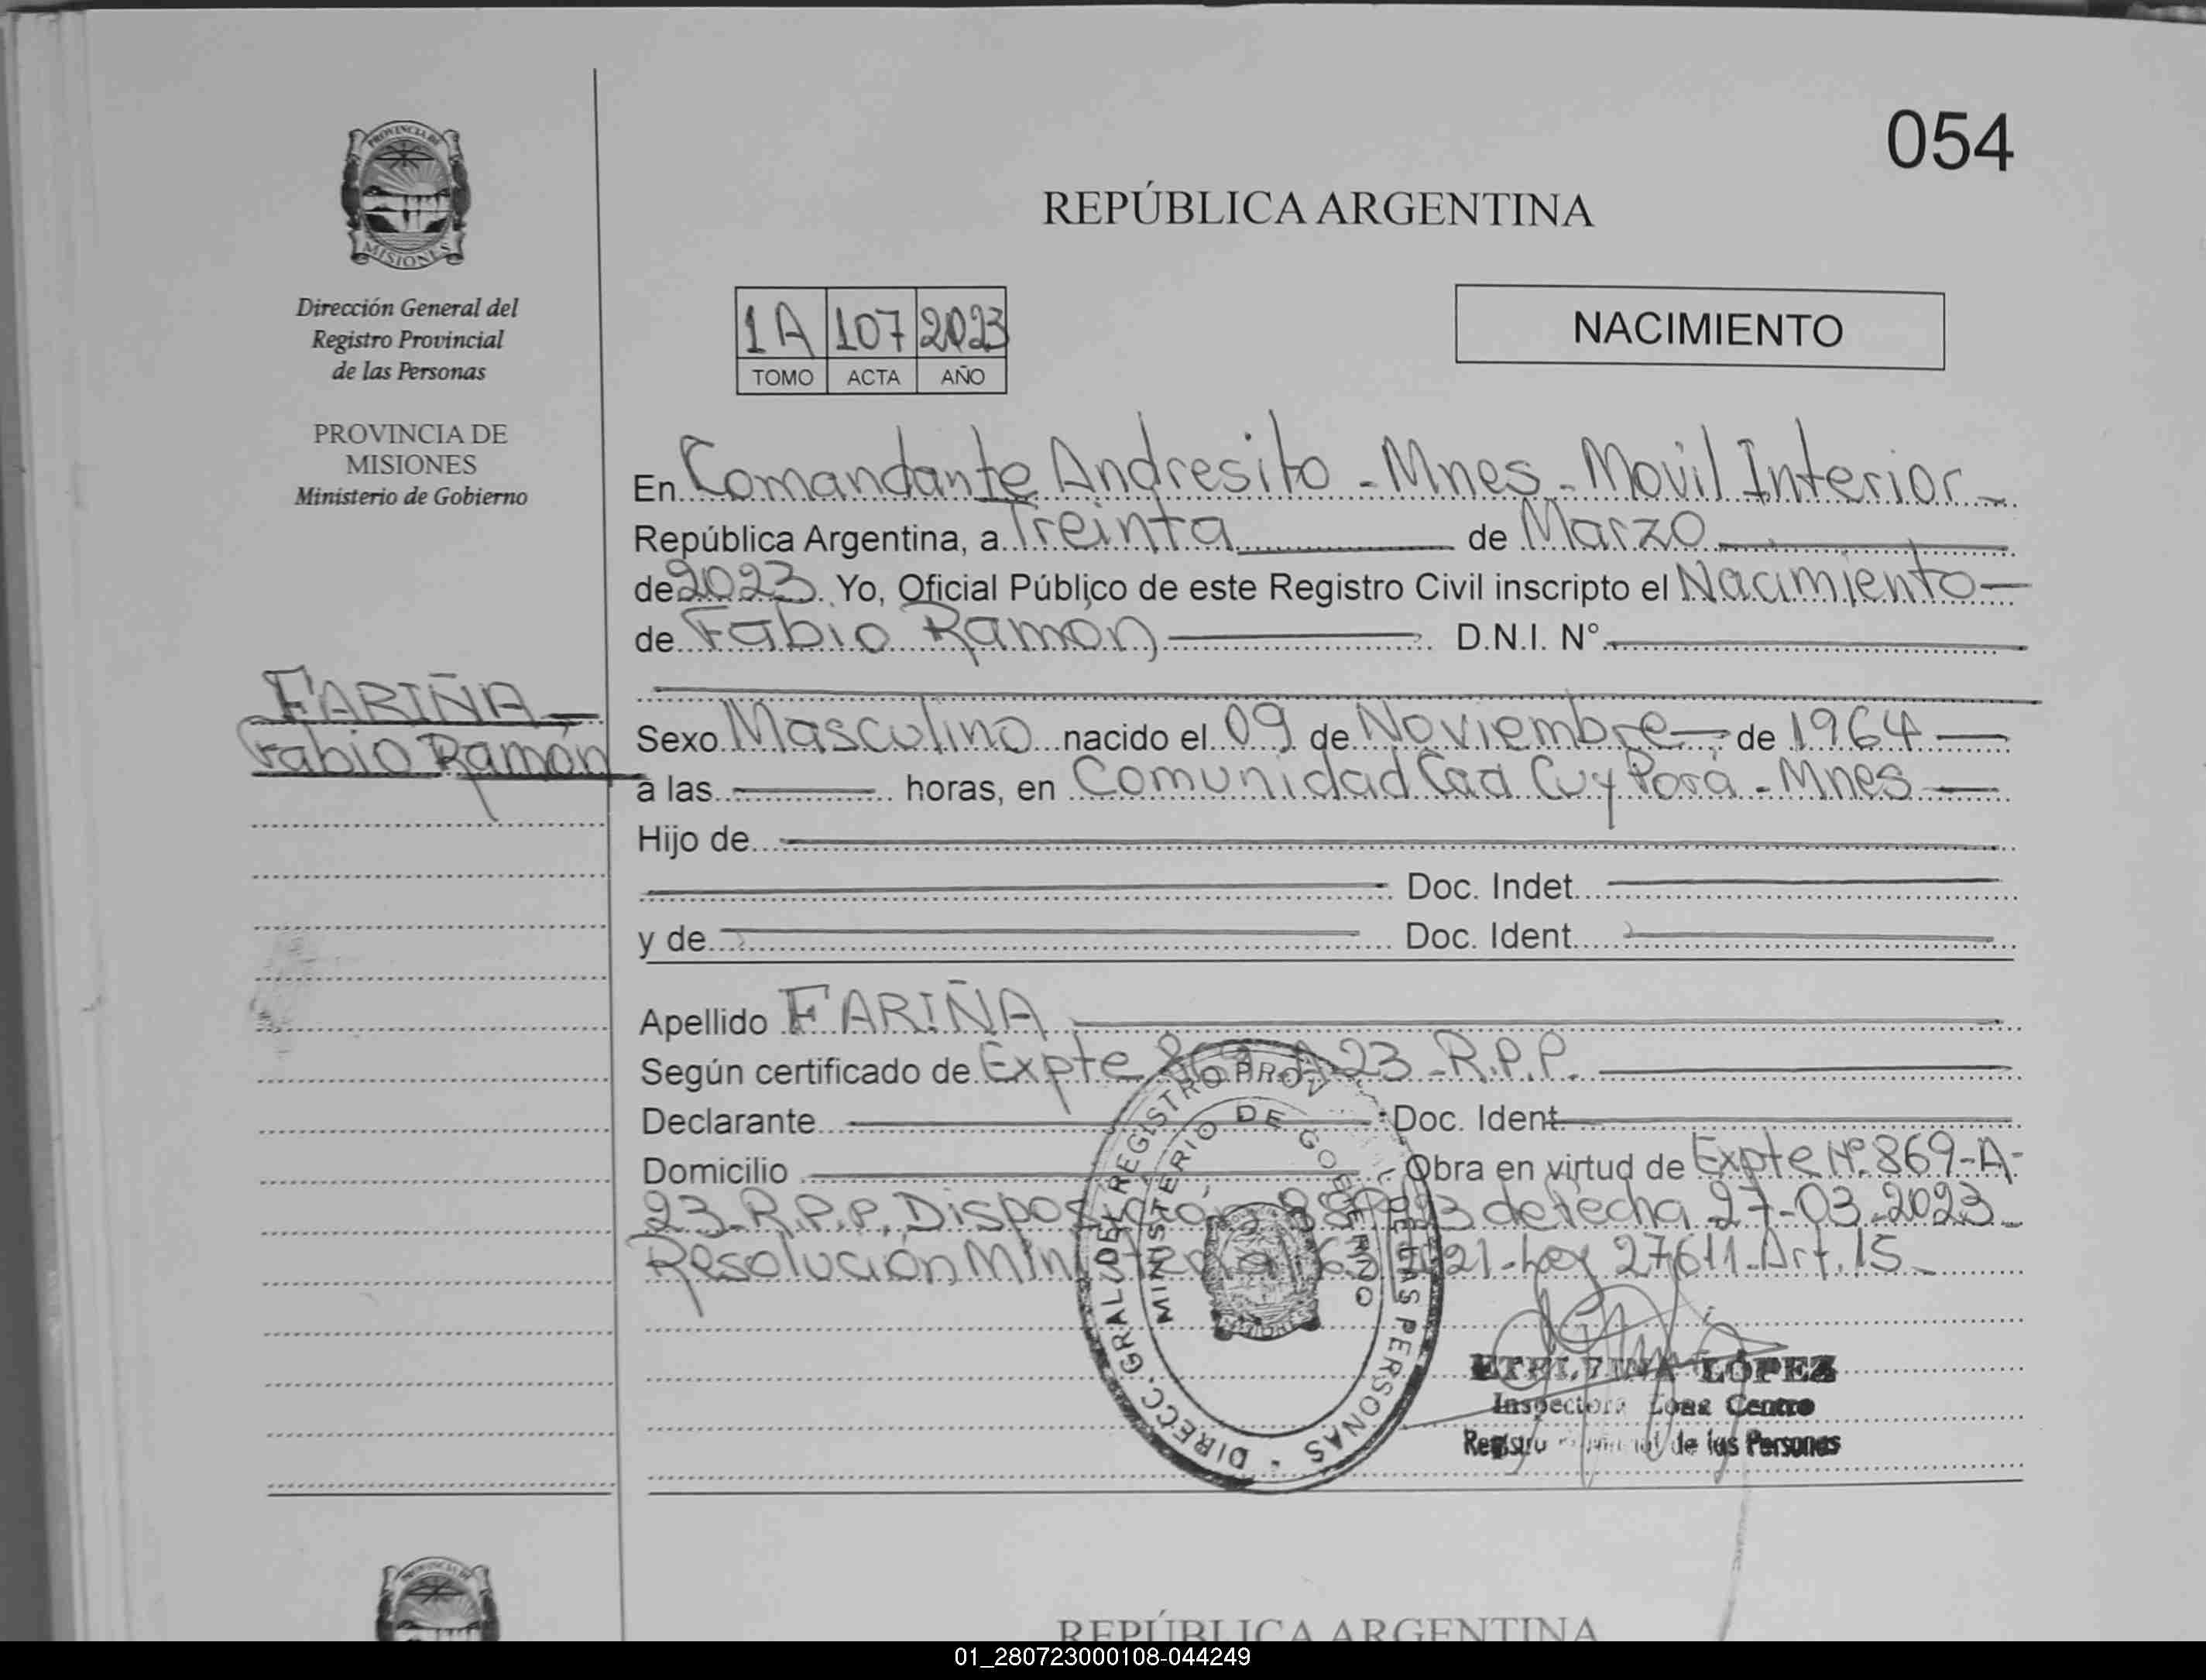 054
PROVINCIA DE
MISIONES
Dirección General del
Registro Provincial
de las Personas
PROVINCIA DE
MISIONES
Ministerio de Gobierno
FARIÑA
Fabio Ramón
REPÚBLICA ARGENTINA
1A 107 2023
TOMO ACTA AÑO
NACIMIENTO
En Comandante Andresito - Mnes - Movil Interior -
República Argentina, a Treinta de Marzo
de 2023 Yo, Oficial Público de este Registro Civil inscripto el Nacimiento
de Fabio Ramón D.N.I. N°
Sexo Masculino nacido el 09 de Noviembre de 1964
a las horas, en Comunidad Caa Cuy Porá - Mnes
Hijo de
Doc. Indet.
y de Doc. Ident.
Apellido FARIÑA
Según certificado de Expte 869-A-23 - R.P.P.
Declarante Doc. Ident
Domicilio Obra en virtud de Expte Nº 869-A-
23-R.P.P. Disposición de fecha 27-03-2023
Resolución Ministerial - Ley 27611 - Art. 15
DIRECC. GRAL. DEL REGISTRO PROV. DE LAS PERSONAS
MINISTERIO DE GOBIERNO
LÓPEZ
Inspectora Zona Centro
Registro Provincial de las Personas
REPÚBLICA ARGENTINA
01_280723000108-044249